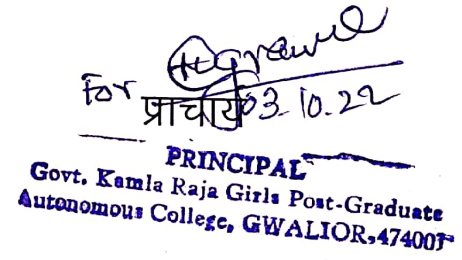 For
प्राचार्य 03.10.22
PRINCIPAL
Govt. Kamla Raja Girls Post-Graduate
Autonomous College, GWALIOR,474007